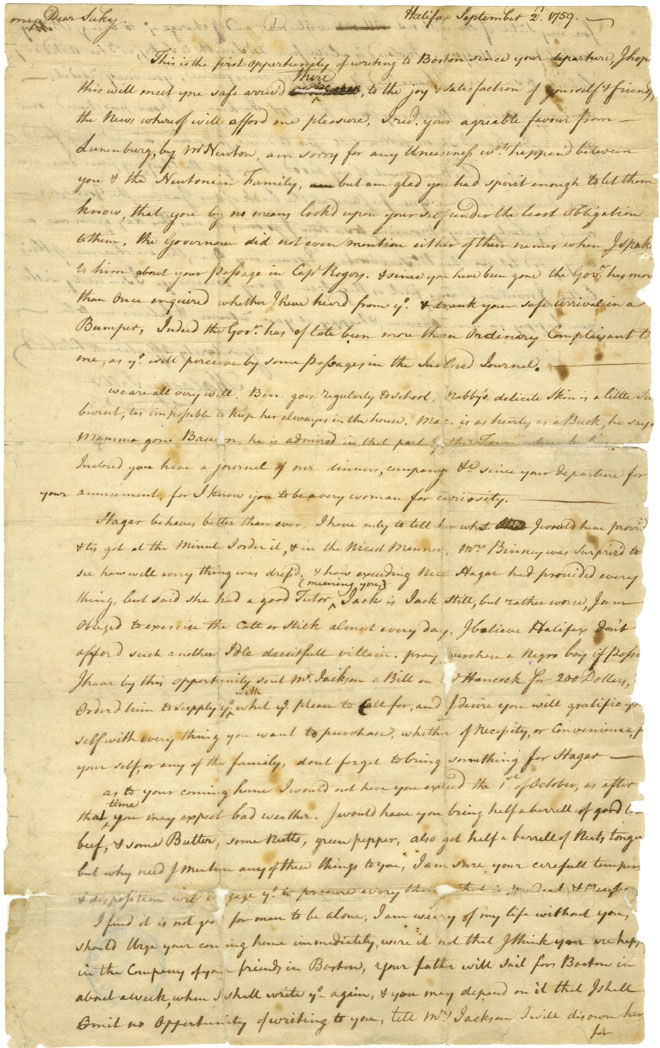 my Dear Suky Halifax September 2d. 1759.
This is the first opportunity of writing to Boston since your departure, I hope
this will meet you safe arrived there, to the joy & satisfaction of yourself & friends,
the News whereof will afford me pleasure, I recd. your agreable favour from
Lunenburg, by Mr Newton, am sorry for any Uneasiness wch. happend between
you & the Newtonian Family, but am glad you had spirit enough to let them
know, that you by no means look'd upon yourself under the least Obligation
to them, the Governour did not even mention either of their names when I spake
to him about your Passage in Capt. Rogers. & since you have been gone the Govr. has more
than Once enquired whether I have heard from yo. & drank your safe arrival in a
Bumper, Indeed the Govr. has of late been more than Ordinary Complisant to
me, as yo. will perceive by some Passages in the Inclosed Journal.
we are all very well, Ben. goes regularly to school, Nabby's delicate Skin is a little Sun
burnt, tis impossible to keep her always in the house. Mac. is as hearty as a Buck, he says
Mamma gone he is admired in that part of the Town where he
Inclosed you have a journal of our dinners, company &c. since your departure for
your amusement, for I know you to be a very woman for curiosity.
Hagar behaves better than ever, I have only to tell her what I would have provided
& tis got at the Minute I order it, & in the Nicest Manner, Mrs Binney was Surprizd to
see how well every thing was dress'd, & how exceeding Nice Hagar had provided every
thing, but said she had a good Tutor (meaning you) Jack is Jack Still, but rather worse, I am
Obliged to exercise the Catt or Stick almost every day, I believe Halifax don't
afford such another Idle deceitfull villain. pray purchase a Negro boy if possible
I have by this opportunity sent Mr. Jackson a Bill on Hancock for 200 Dollars,
Order'd him to supply yo. with what yo. please to Call for, and I desire you will gratifie your
self with every thing you want to purchase, whether of Necessity, or Convenience,
your self, or any of the family, dont forget to bring something for Hagar
as to your coming home I would not have you exceed the 1st. of October, as after
that time you may expect bad weather. I would have you bring half a barrell of good
beef, & some Butter, some Nutts, green pepper, also get half a barrell of Neats tongues
but why need I mention any of these things to you, I am sure your carefull temper
& disposition will engage yo. to procure every thing that is
I find it is not good for man to be alone, I am weary of my life without you,
should Urge your coming home immediately, were it not that I think you are happy
in the Company of your friends in Boston, your father will Sail for Boston in
about a week when I shall write yo. again, & you may depend on it that I shall
Omit no Opportunity of writing to you, tell Mrs Jackson I will disown her
for